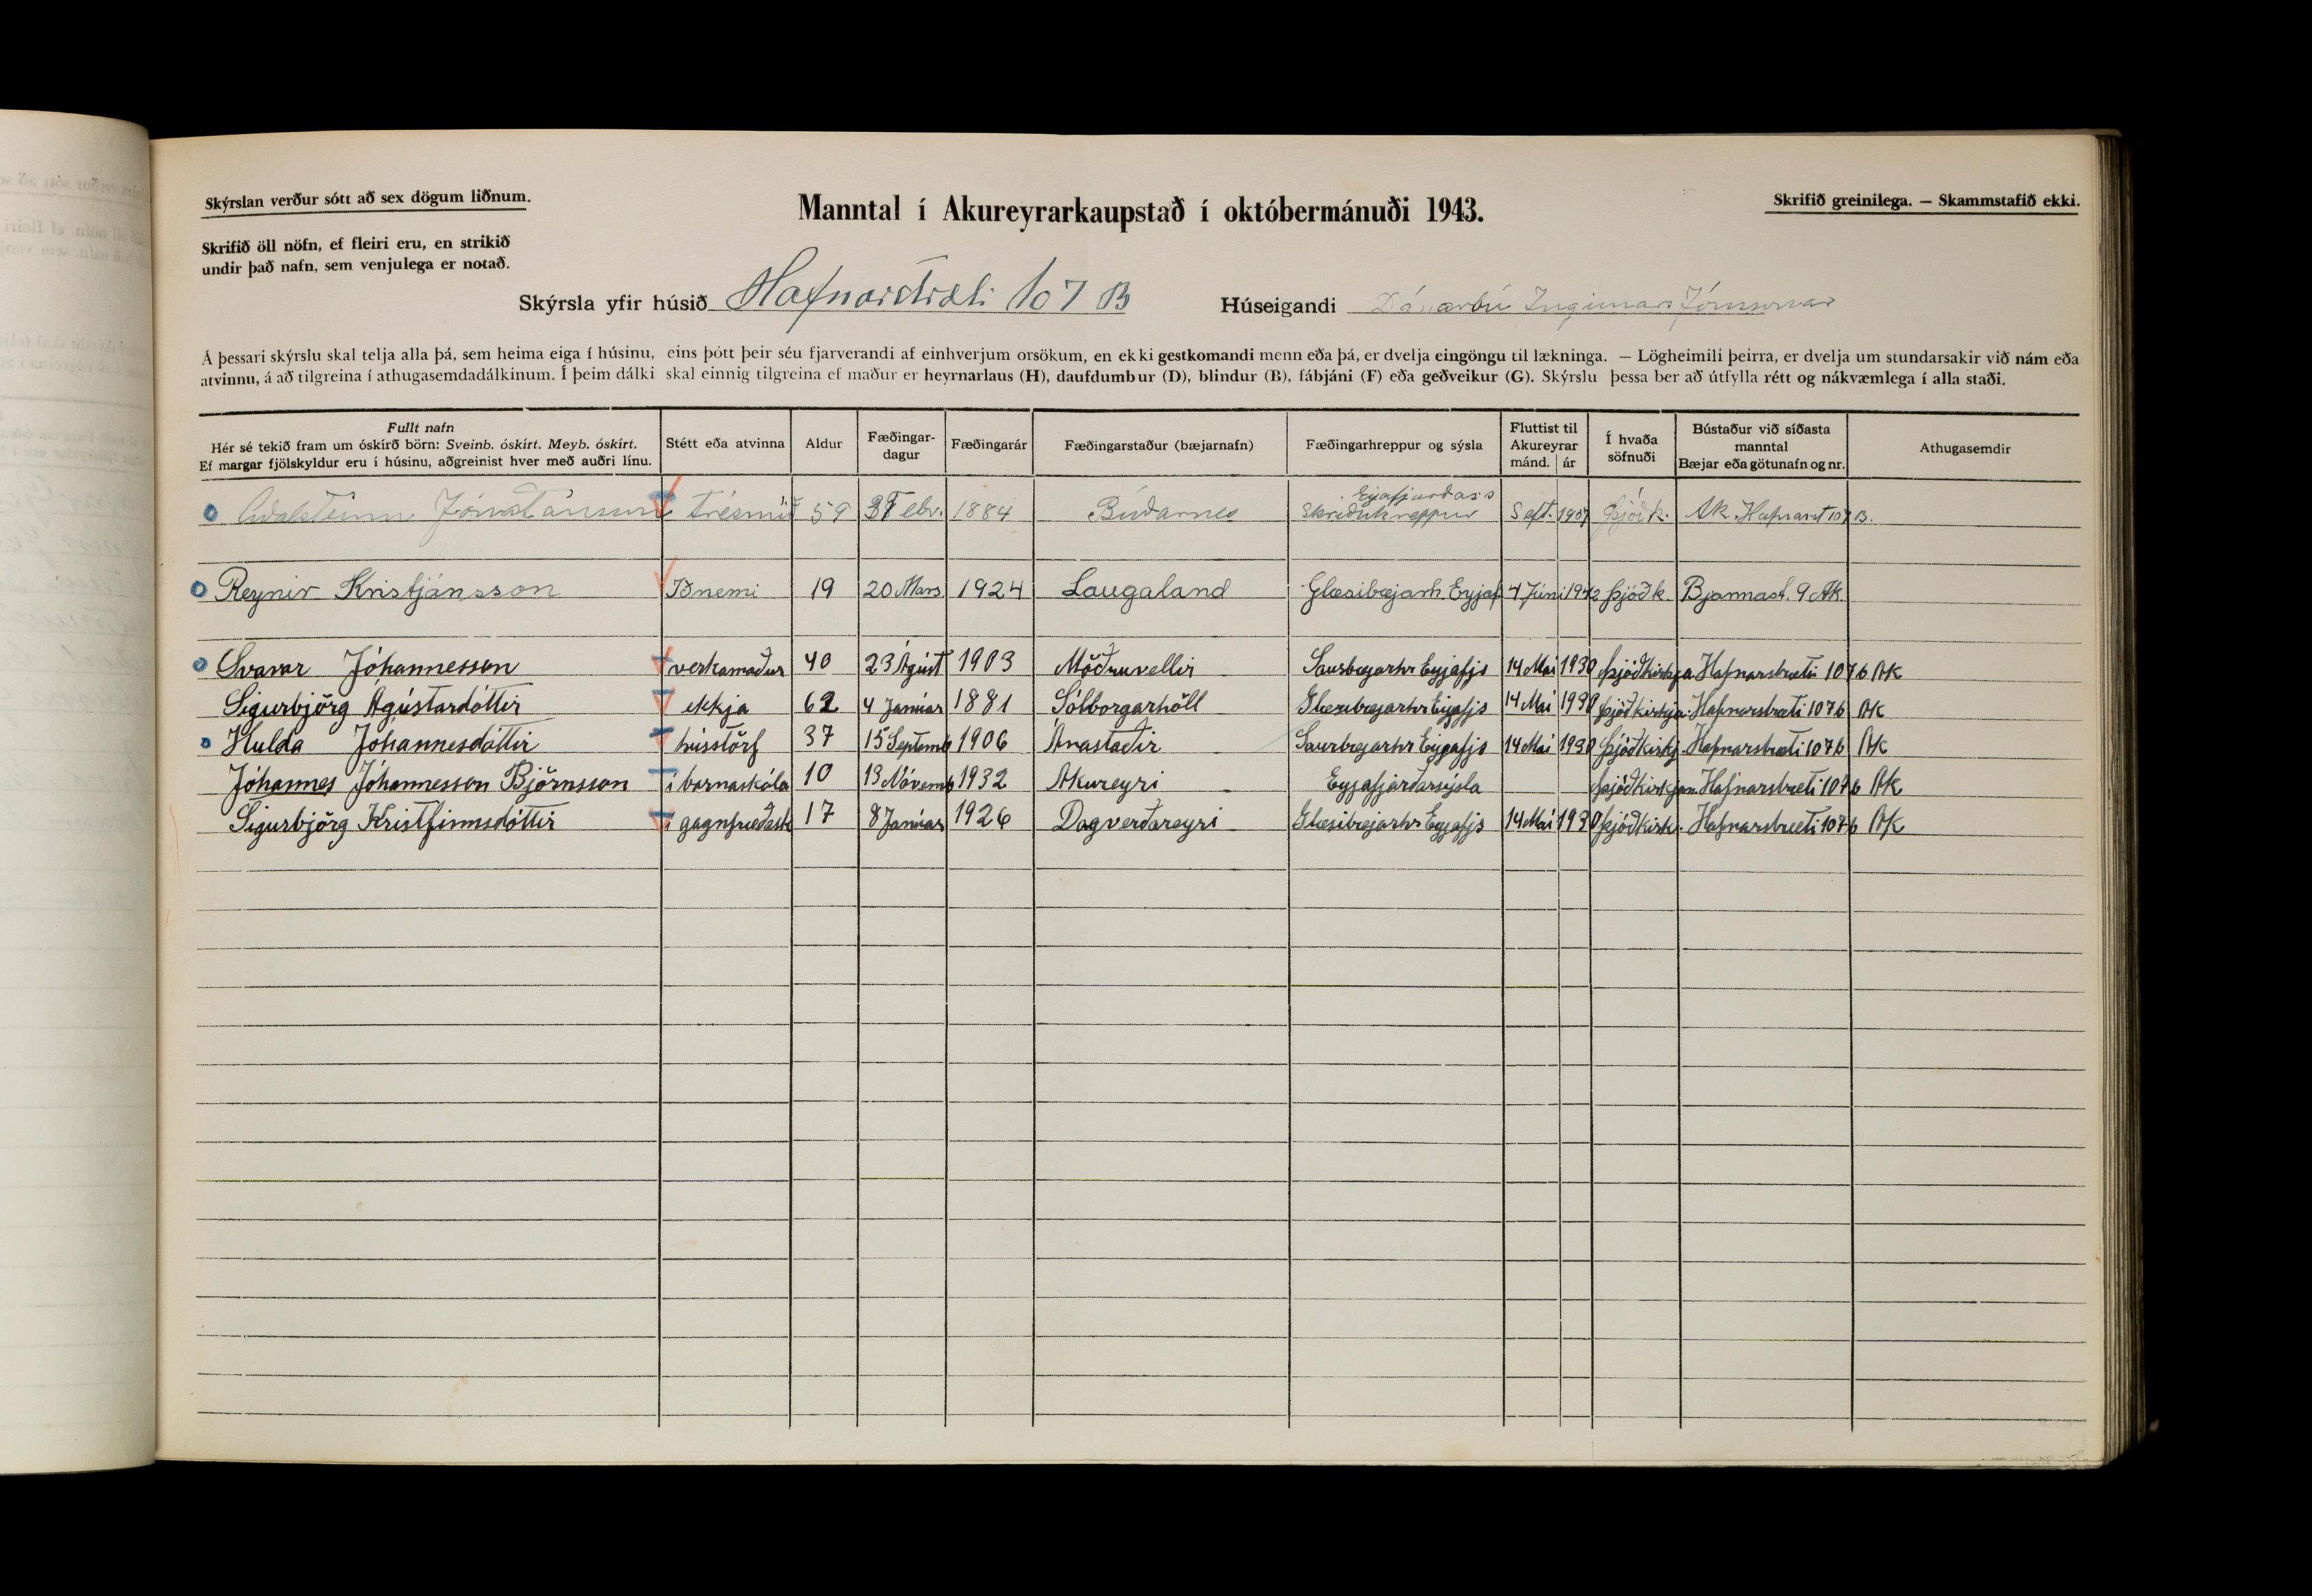 Skýrslan verður sótt að sex dögum liðnum.
Manntal í Akureyrarkaupstað í októbermánuði 1943.
Skrifið greinilega. — Skammstafið ekki.
Skrifið öll nöfn, ef fleiri eru, en strikið
undir það nafn, sem venjulega er notað.
Skýrsla yfir húsið Hafnarstræti 107 B Húseigandi Dánarbú Ingimars Jónssonar
Á þessari skýrslu skal telja alla þá, sem heima eiga í húsinu, eins þótt þeir séu fjarverandi af einhverjum orsökum, en ekki gestkomandi menn eða þá, er dvelja eingöngu til lækninga. — Lögheimili þeirra, er dvelja um stundarsakir við nám eða
atvinnu, á að tilgreina í athugasemdadálkinum. Í þeim dálki skal einnig tilgreina ef maður er heyrnarlaus (H), daufdumbur (D), blindur (B), fábjáni (F) eða geðveikur (G). Skýrslu þessa ber að útfylla rétt og nákvæmlega í alla staði.
Fullt nafn
Hér sé tekið fram um óskírð börn: Sveinb. óskírt. Meyb. óskírt.
Ef margar fjölskyldur eru í húsinu, aðgreinist hver með auðri línu.
Stétt eða atvinna
Aldur
Fæðingar-
dagur
Fæðingarár
Fæðingarstaður (bæjarnafn)
Fæðingarhreppur og sýsla
Fluttist til
Akureyrar
mánd. ár
Í hvaða
söfnuði
Bústaður við síðasta
manntal
Bæjar eða götunafn og nr.
Athugasemdir
Eyjafjarðars
Aðalsteinn Jónatansson trésmið 59 3 Febr. 1884 Búðarnes Skriðuhreppur Sept. 1907 Þjóðk. Ak. Hafnarst 107 B.
Reynir Kristjánsson Iðnemi 19 20 Mars 1924 Laugaland Glæsibæjarh. Eyjaf 4 Júni 1942 Þjóðk. Bjarmast. 9 Ak.
Svavar Jóhannesson verkamaður 40 23 Ágúst 1903 Möðruvellir Saurbæjarhr Eyjafjs 14 Mai 1930 Þjóðkirkja Hafnarstræti 107 b AK
Sigurbjörg Ágústardóttir ekkja 62 4 Janúar 1881 Sólborgarhóll Glæsibæjarhr Eyjafjs 14 Mai 1930 Þjóðkirkja Hafnarstræti 107 b AK
Hulda Jóhannesdóttir hússtörf 37 15 Septemb 1906 Ánastaðir Saurbæjarhr Eyjafjs 14 Mai 1930 Þjóðkirkj. Hafnarstræti 107 b AK
Jóhannes Jóhannesson Björnsson í barnaskóla 10 13 Nóvemb 1932 Akureyri Eyjafjarðarsýsla Þjóðkirkjan Hafnarstræti 107 b AK
Sigurbjörg Kristfinnsdóttir í gagnfræðask 17 8 Janúar 1926 Dagverðareyri Glæsibæjarhr Eyjafjs 14 Mai 1930 Þjóðkirk. Hafnarstræti 107 b AK